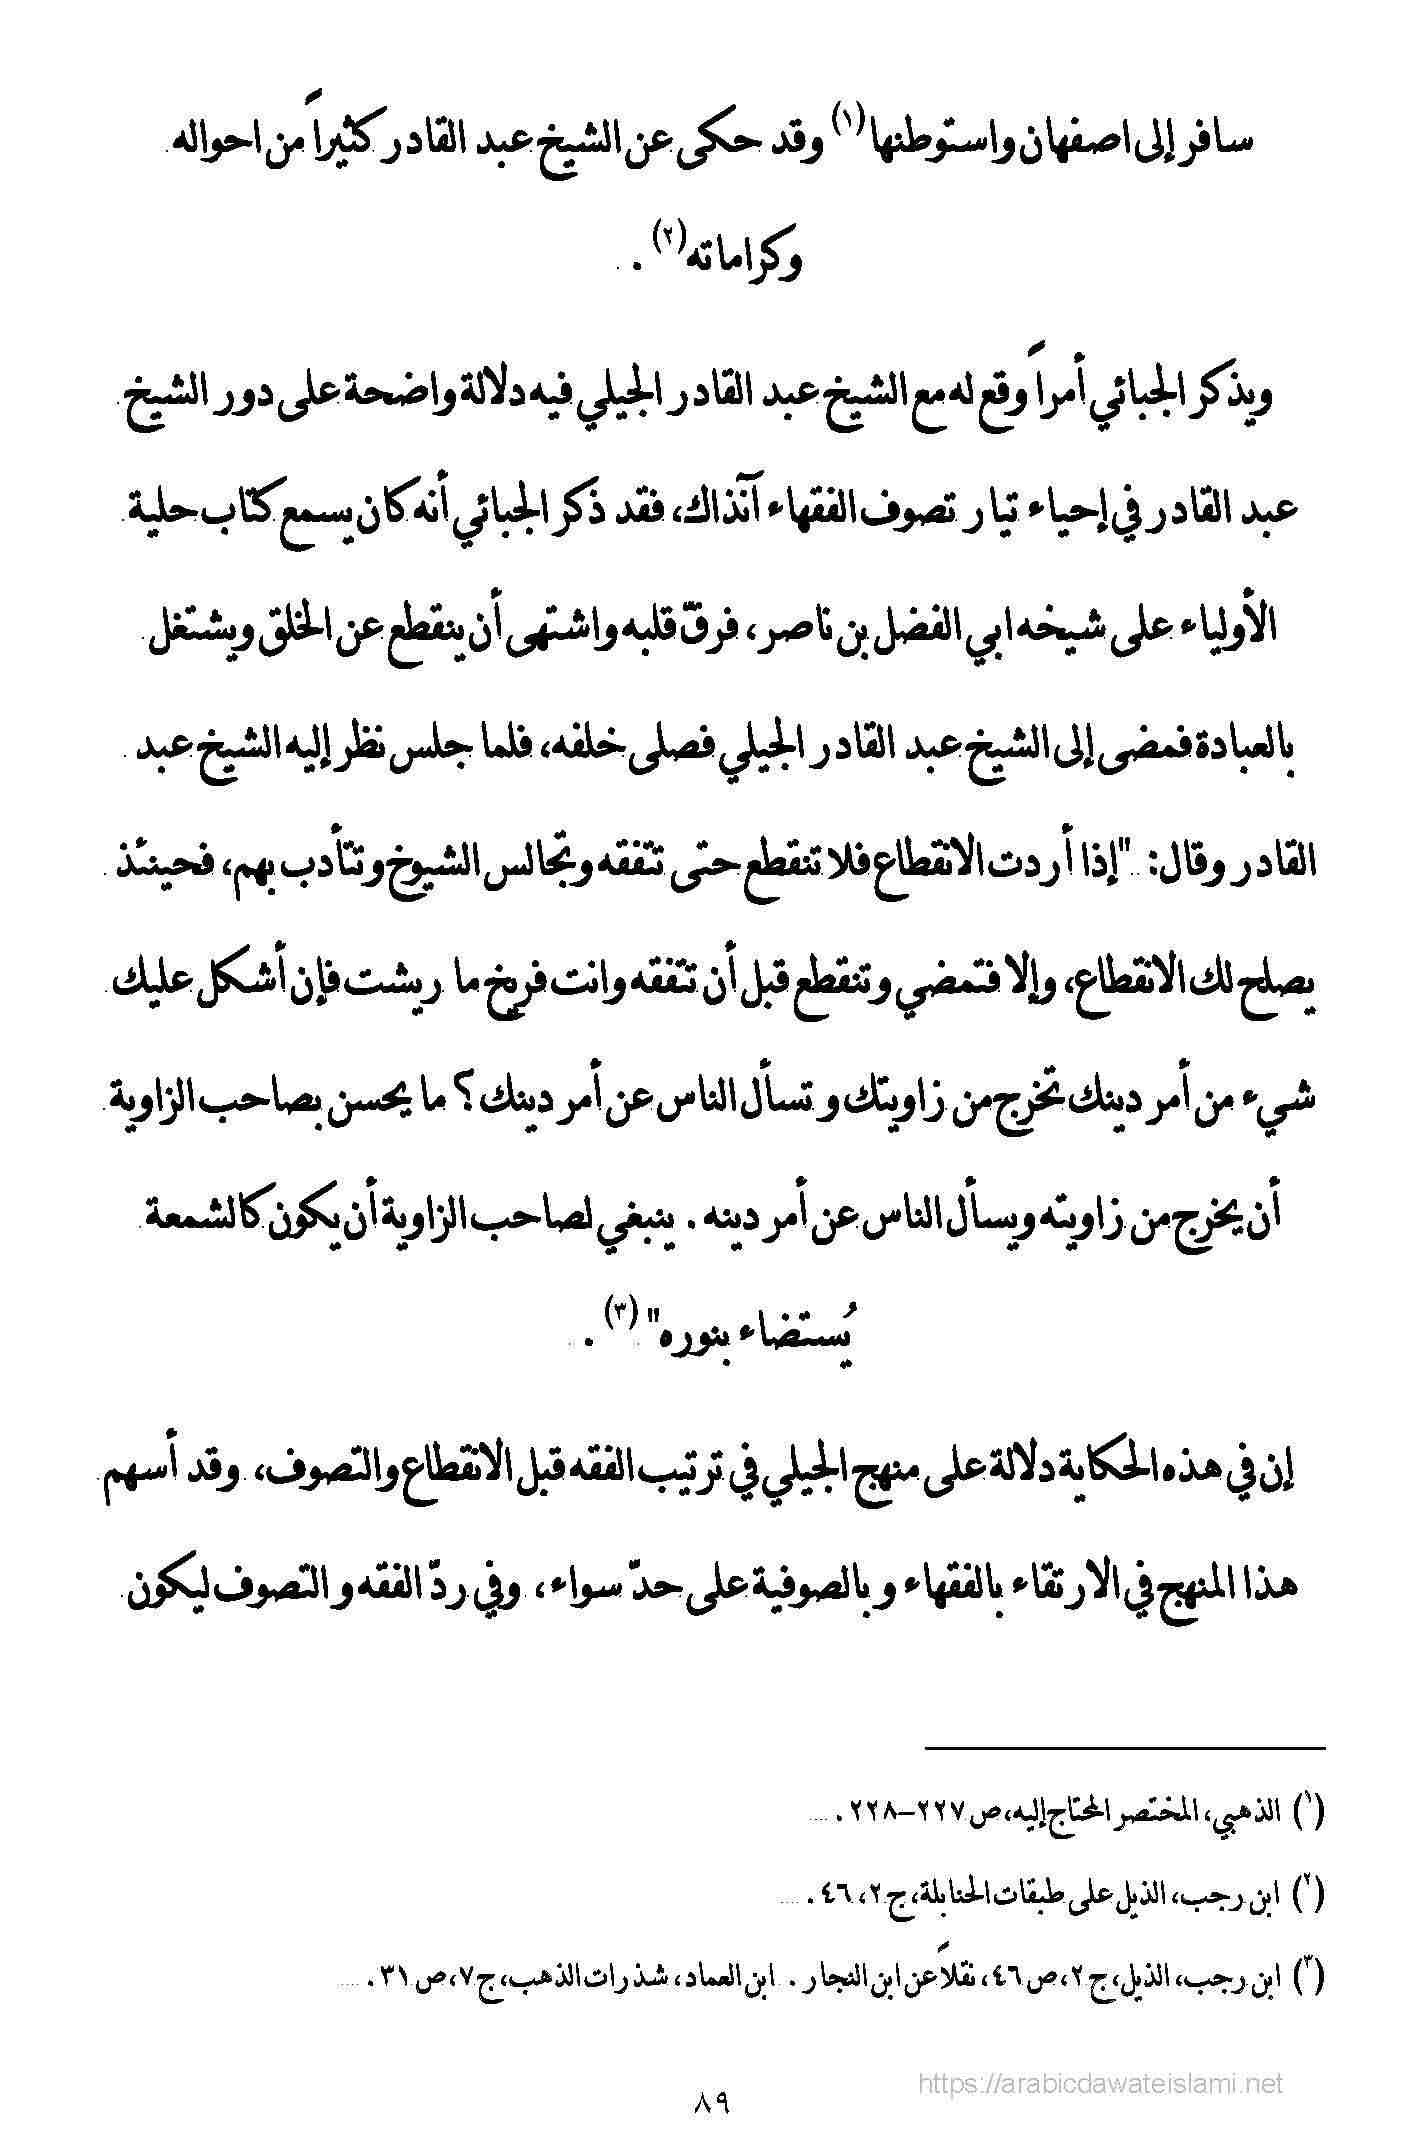 سافر إلى اصفهان واستوطنها(١) وقد حكى عن الشيخ عبد القادر كثيراً من احواله
وكراماته(٢) .
ويذكر الجبائي أمراً وقع له مع الشيخ عبد القادر الجيلي فيه دلالة واضحة على دور الشيخ
عبد القادر في إحياء تيار تصوف الفقهاء آنذاك، فقد ذكر الجبائي أنه كان يسمع كتاب حلية
الأولياء على شيخه ابي الفضل بن ناصر، فرقّ قلبه واشتهى أن ينقطع عن الخلق ويشتغل
بالعبادة فمضى إلى الشيخ عبد القادر الجيلي فصلى خلفه، فلما جلس نظر إليه الشيخ عبد
القادر وقال: "إذا أردت الانقطاع فلا تنقطع حتى تتفقه وتجالس الشيوخ وتتأدب بهم، فحينئذ
يصلح لك الانقطاع، وإلا فتمضي وتنقطع قبل أن تتفقه وانت فريخ ما ريشت فإن أشكل عليك
شيء من أمر دينك تخرج من زاويتك وتسأل الناس عن أمر دينك؟ ما يحسن بصاحب الزاوية
أن يخرج من زاويته ويسأل الناس عن أمر دينه . ينبغي لصاحب الزاوية أن يكون كالشمعة
يُستضاء بنوره" (٣) .
إن في هذه الحكاية دلالة على منهج الجيلي في ترتيب الفقه قبل الانقطاع والتصوف، وقد أسهم
هذا المنهج في الارتقاء بالفقهاء وبالصوفية على حدّ سواء، وفي ردّ الفقه والتصوف ليكون
(١) الذهبي، المختصر المحتاج إليه، ص ٢٢٧-٢٢٨ .
(٢) ابن رجب، الذيل على طبقات الحنابلة، ج ٢، ٤٦ .
(٣) ابن رجب، الذيل، ج ٢، ص ٤٦، نقلاً عن ابن النجار . ابن العماد، شذرات الذهب، ج ٧، ص ٣١ .
https://arabicdawateislami.net
٨٩